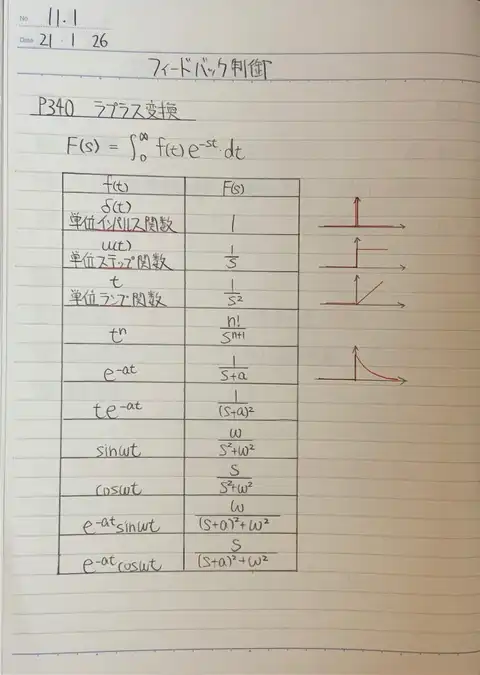 No. 11.1
Date 21・1 26
フィードバック制御
P340 ラプラス変換
F(s) = ∫₀^∞ f(t) e^{-st}・dt
f(t) F(s)
δ(t)
単位インパルス関数 1
u(t)
単位ステップ関数 1/s
t
単位ランプ関数 1/s²
tⁿ n!/s^{n+1}
e^{-at} 1/(s+a)
te^{-at} 1/(s+a)²
sinωt ω/(s²+ω²)
cosωt s/(s²+ω²)
e^{-at}sinωt ω/((s+a)²+ω²)
e^{-at}cosωt s/((s+a)²+ω²)